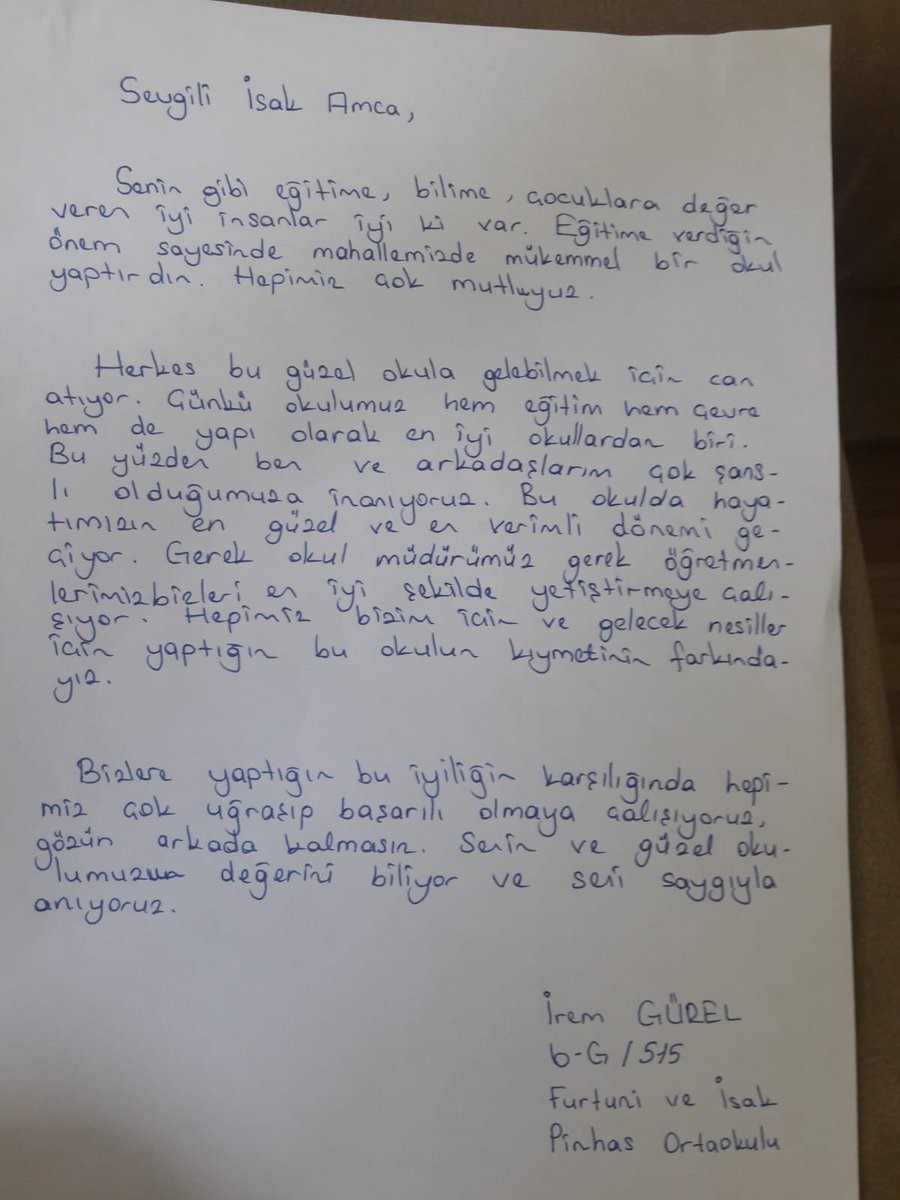 Sevgili İsak Amca,
Senin gibi eğitime, bilime, çocuklara değer
veren iyi insanlar iyi ki var. Eğitime verdiğin
önem sayesinde mahallemizde mükemmel bir okul
yaptırdın. Hepimiz çok mutluyuz.
Herkes bu güzel okula gelebilmek için can
atıyor. Çünkü okulumuz hem eğitim hem çevre
hem de yapı olarak en iyi okullardan biri.
Bu yüzden ben ve arkadaşlarım çok şans-
lı olduğumuza inanıyoruz. Bu okulda haya-
tımızın en güzel ve en verimli dönemi ge-
çiyor. Gerek okul müdürümüz gerek öğretmen-
lerimiz bizleri en iyi şekilde yetiştirmeye çalı-
şıyor. Hepimiz bizim için ve gelecek nesiller
için yaptığın bu okulun kıymetinin farkında-
yız.
Bizlere yaptığın bu iyiliğin karşılığında hepi-
miz çok uğraşıp başarılı olmaya çalışıyoruz,
gözün arkada kalmasın. Senin ve güzel oku-
lumuzun değerini biliyor ve seni saygıyla
anıyoruz.
İrem GÜREL
6-G / 515
Furtuni ve İsak
Pinhas Ortaokulu